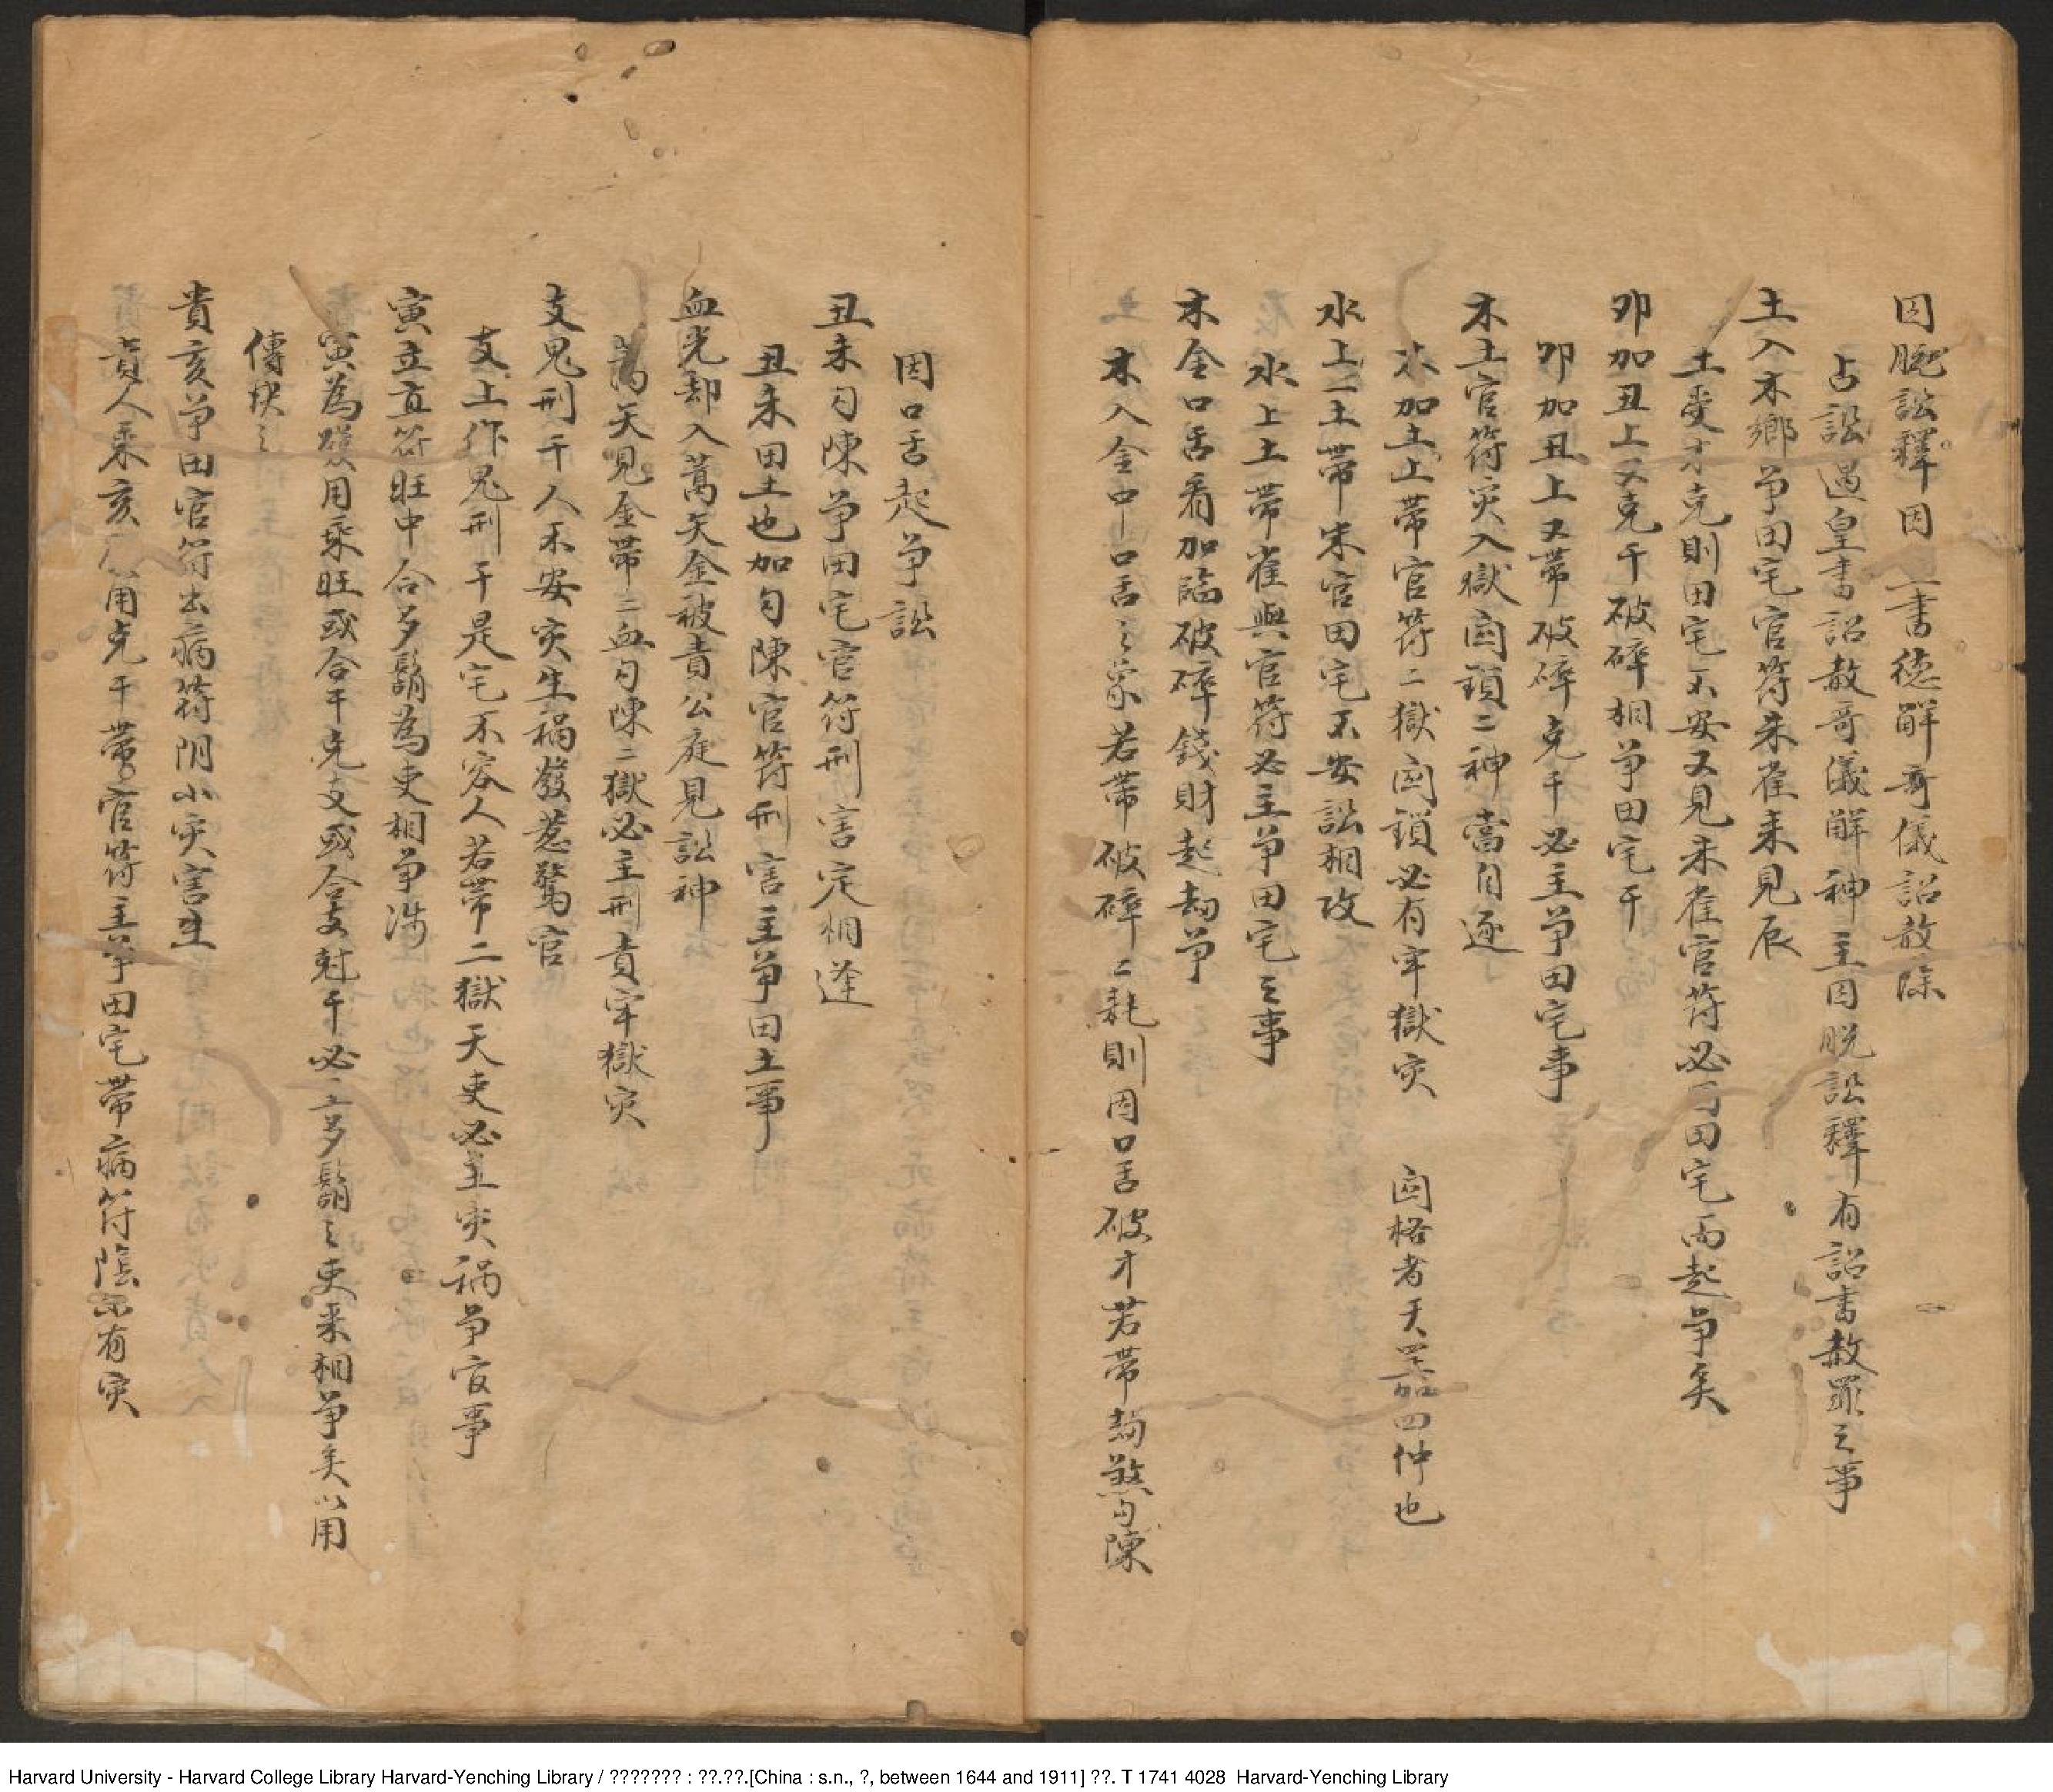 囚脱訟釋因一書德解奇儀詔赦除
占訟遇皇書詔赦奇儀解神主囚脱訟釋有詔書赦罪之事
土入木鄉争田宅官符朱雀来見辰
土受才克則田宅不安又見朱雀官符必 田宅而起争矣
卯加丑上又克干破碎相争田宅干
卯加丑上又帶破碎克干必主争田宅事
木土官符灾入獄囚鎖二神當自逐
水加土上帶官符二獄囚鎖必有牢獄灾 囚格者天罡加四仲也
水上一土帶朱官田宅不安訟相攻
水上土帶雀與官符必主争田宅之事
木金口舌看加臨破碎錢財起劫争
木入金中口舌之象若帶破碎二耗則因口舌破才若帶劫煞勾陳
因口舌起争訟
丑未勾陳争田宅官符刑害定相逢
丑未田土也加勾陳官符刑害主争田土事
血光却入蒿矢金被責公庭見訟神
蒿矢見金帶二血勾陳二獄必主刑責牢獄灾
支鬼刑干人不安灾生禍發惹驚官
支上作鬼刑干是宅不容人若帶二獄天吏必主灾禍争官事
寅立直符旺中合多鬍為吏相争涉
寅為 用乘旺或合干克支或合支尅干必主多鬍之吏来相争矣以用
傳決之
貴亥争田官符出病符阴小灾害生
貴人乘亥 用克干帶官符主争田宅帶病符陰小有灾
Harvard University - Harvard College Library Harvard-Yenching Library / ??????? : ??.??.[China : s.n., ?, between 1644 and 1911] ??. T 1741 4028 Harvard-Yenching Library